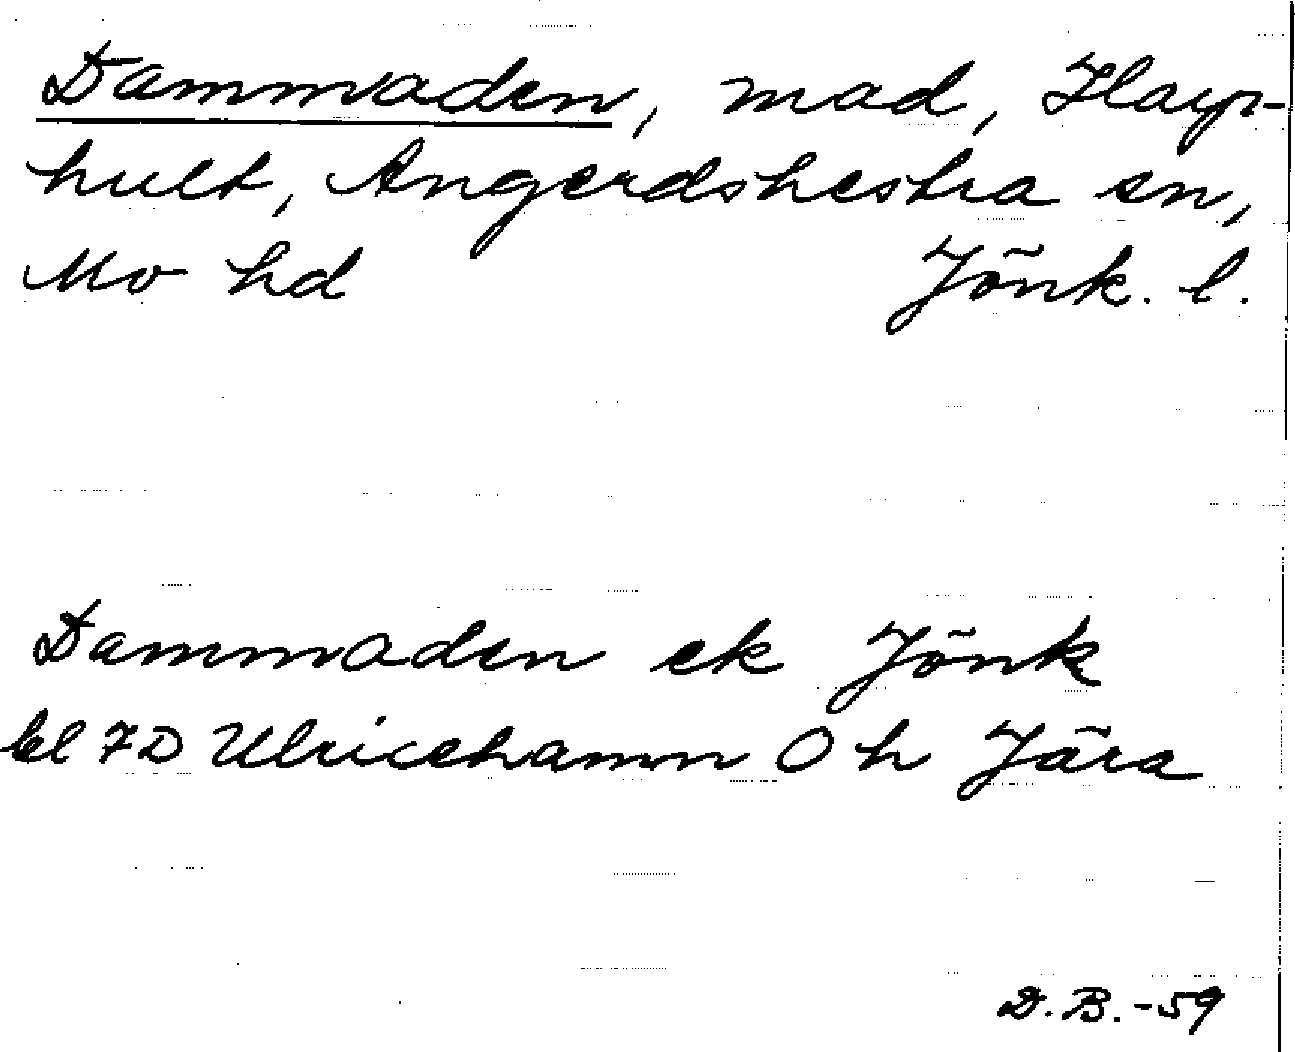 Dammaden, mad, Hagr-
hult, Angerdshestra sn,
Mo hd Jönk. l.
Dammaden ek Jönk
bl 7D Ulricehamn O h Jära
D.B.-59